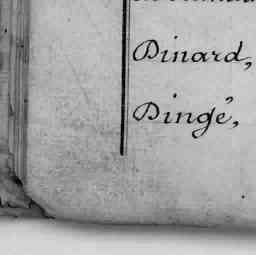 Dinard,
Dingé,